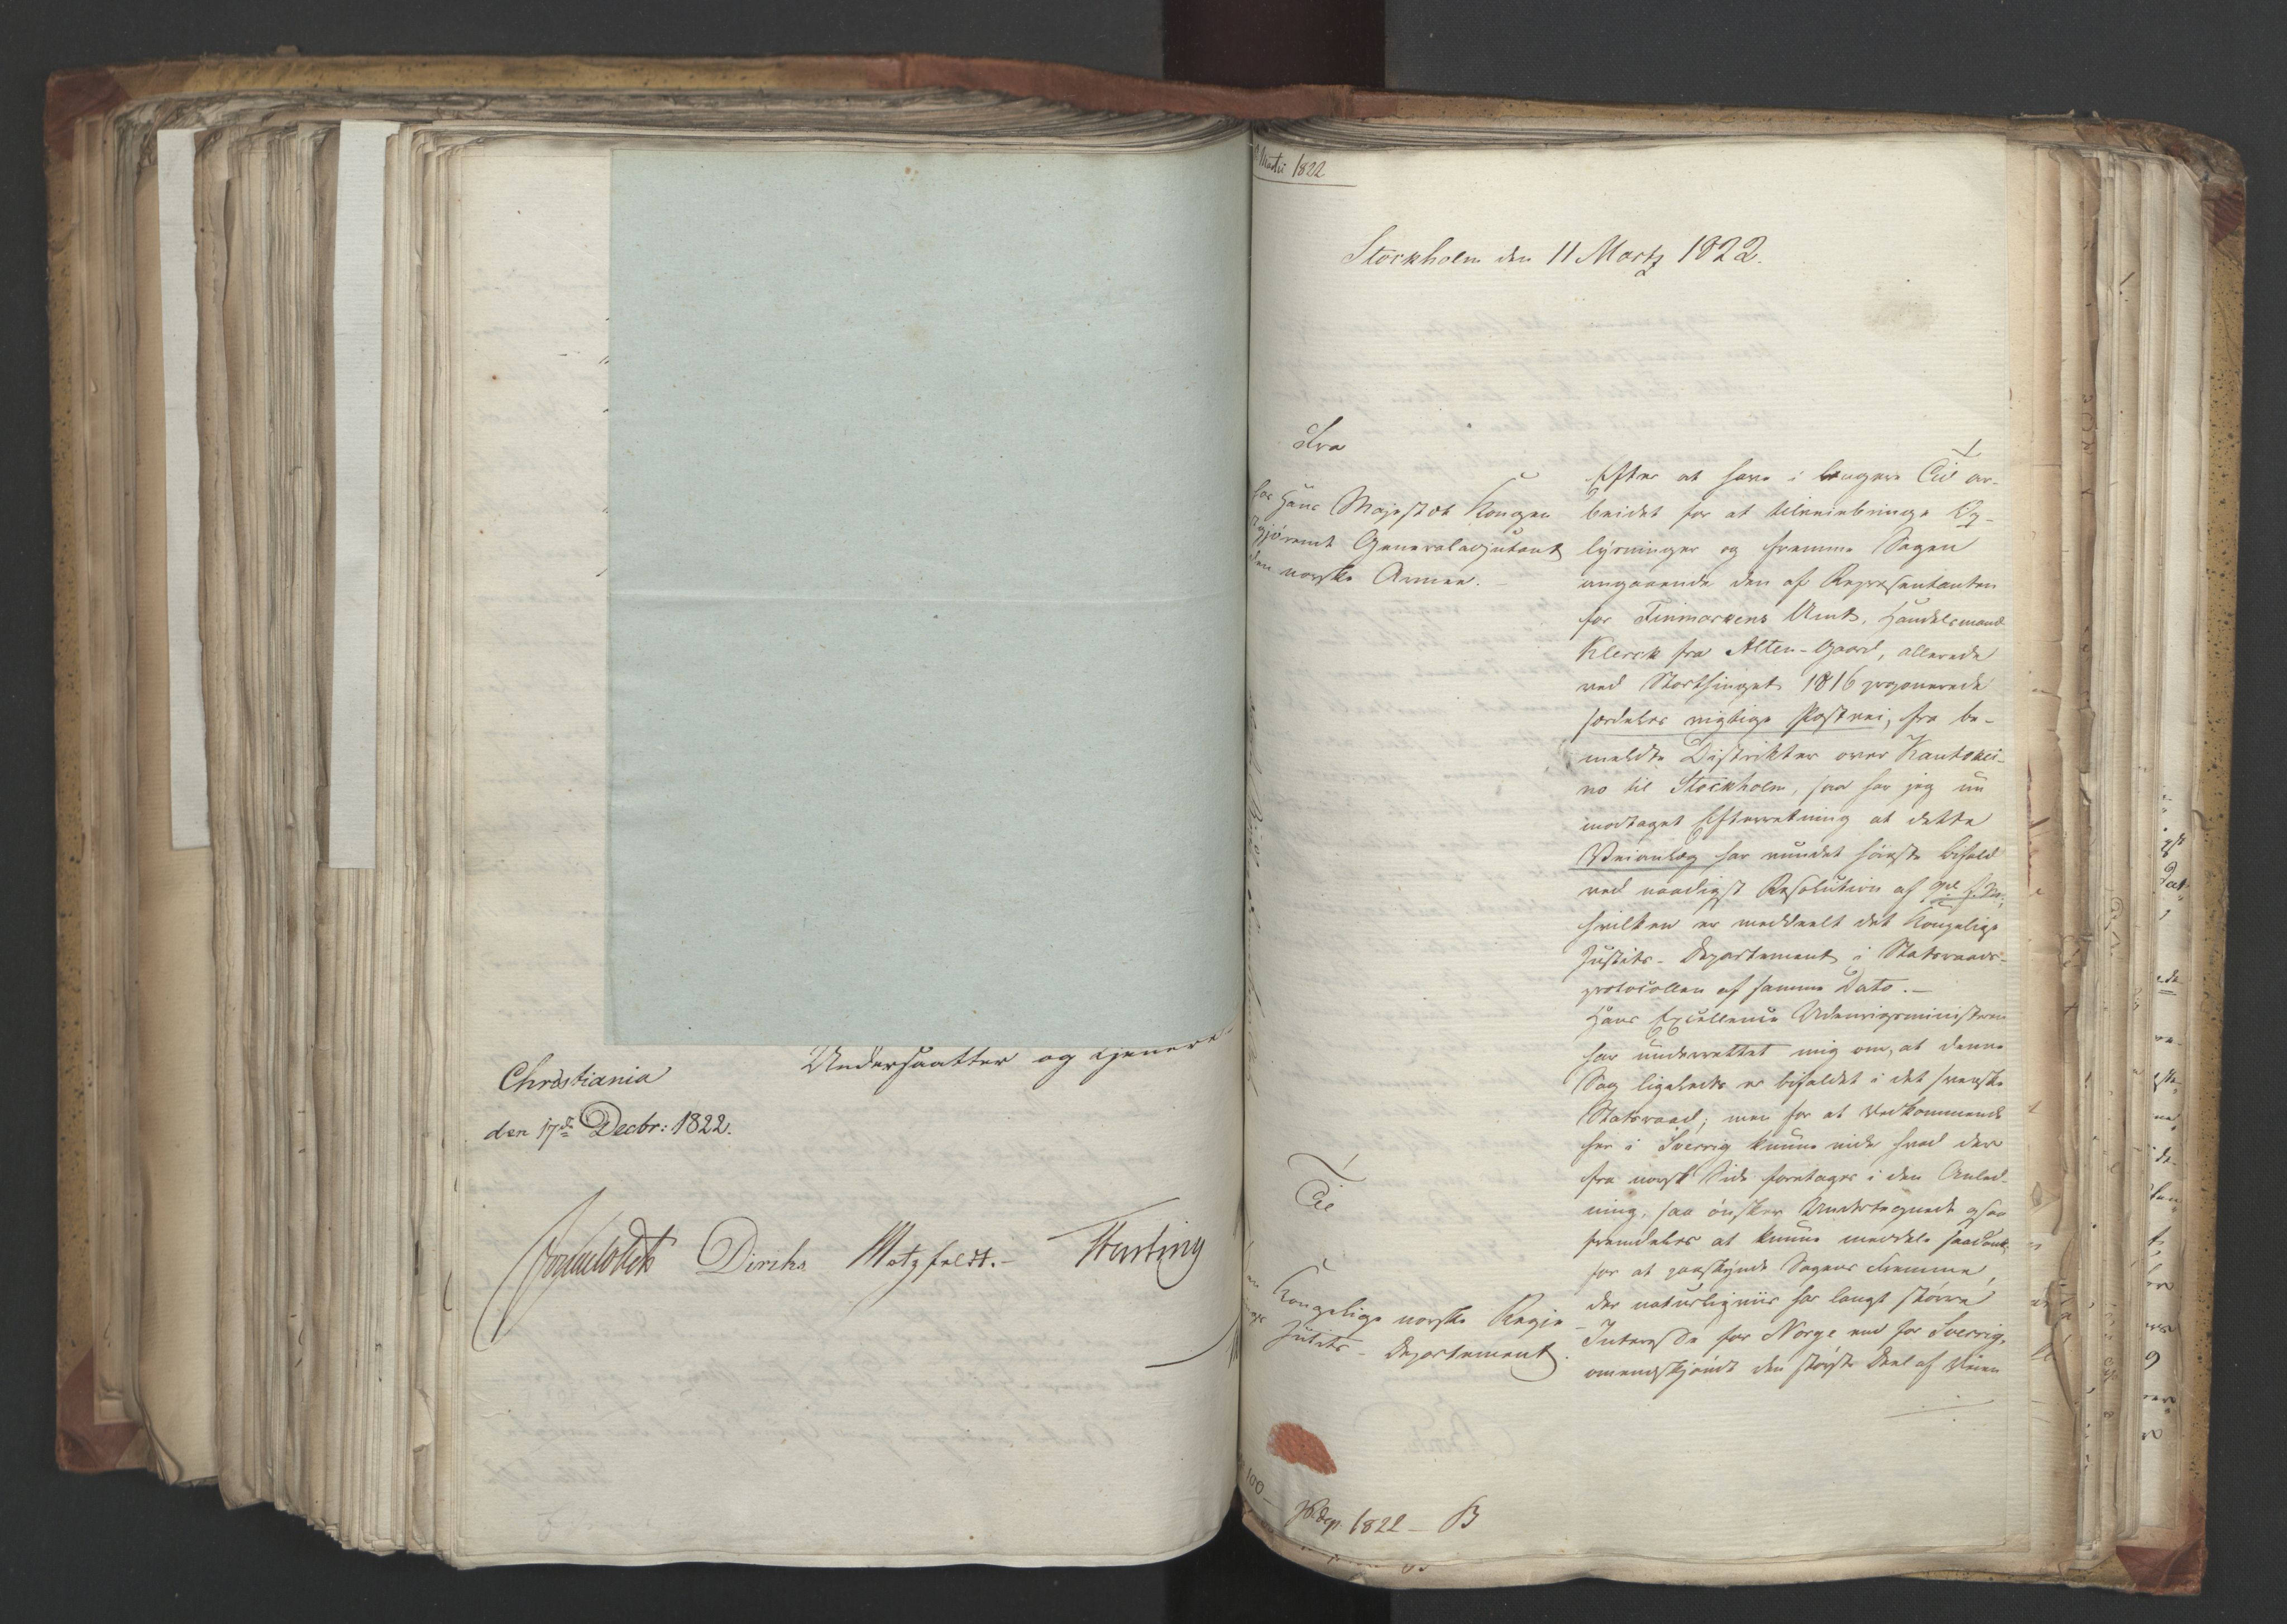 Undersaatter og tjenere
Christiania
den 17de Decbr: 1822.
Diriks Motzfeldt.
Martii 1822
Stockholm den 11 Martz 1822.
Fra
Hans Majestæt Kongen
Generaladjutant
den norske Armee.
Til
Kongelige norske Regje
Justits-Departement.
Efter at have i længere Tid ar-
beidet for at tilveiebringe Op-
lysninger og fremme Sagen
angaaende den af Repræsentanten
for Finmarkens Amt, Handelsmand
Klerck fra Alten-Gaard, allerede
ved Storthinget 1816 proponerede
særdeles vigtige Postvei, fra be-
meldte Distrikter over Kautokei-
no til Stockholm, saa har jeg nu
modtaget Efterretning at dette
Veianlæg har vundet høieste Bifald
ved naadigst Resolution af
hvilken er meddeelt det Kongelige
Justits-Departement i Statsraads-
protocollen af samme Dato.—
Hans Excellence Udenrigsministeren
har underrettet mig om, at denne
Sag ligeledes er bifaldet i det svenske
Statsraad; men for at Vedkommende
her i Sverrig kunne vide hvad der
fra norsk Side foretages i den Anled-
ning, saa ønsker Undertegnede ogsaa
fremdeles at kunne meddele saadant,
for at paaskynde Sagens Fremme,
der naturligviis har langt større
Interesse for Norge end for Sverrig,
omendskjøndt den største Deel af Veien
100
1822 — B